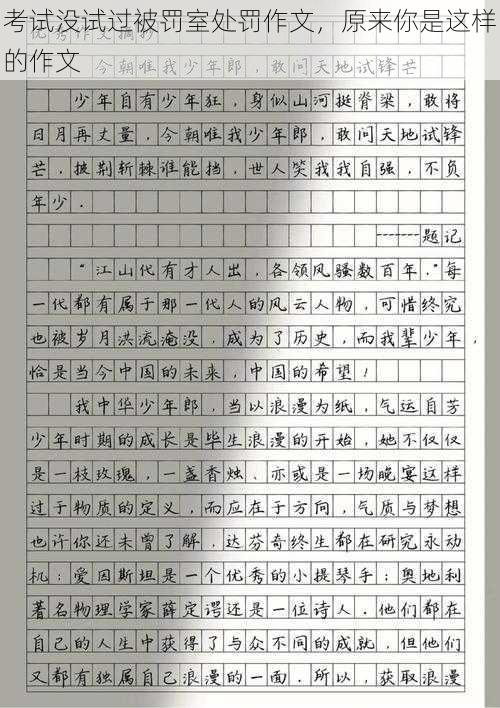 考试没试过被罚室处罚作文，原来你是这样
的作文
优秀作文摘抄
今朝唯我少年郎，敢问天地试锋芒
少年自有少年狂，身似山河挺脊梁，敢将
日月再丈量，今朝唯我少年郎，敢问天地试锋
芒，披荆斩棘谁能挡，世人笑我我自强，不负
年少．
------题记
“江山代有才人出，各领风骚数百年．”每
一代都有属于那一代人的风云人物，可惜终究
也被岁月洪流淹没，成为了历史，而我辈少年，
恰是当今中国的未来，中国的希望！
我中华少年郎，当以浪漫为纸，气运自芳
少年时期的成长是毕生浪漫的开始，她不仅仅
是一枝玫瑰，一盏香烛、亦或是一场晚宴这样
过于物质的定义，而应在于方向，气质与梦想
也许你还未曾了解，达芬奇终生都在研究永动
机；爱因斯坦是一个优秀的小提琴手；奥地利
著名物理学家薛定谔还是一位诗人．他们都在
自己的人生中获得了与众不同的成就，但他们
又都有独属自己浪漫的一面．所以，获取浪漫